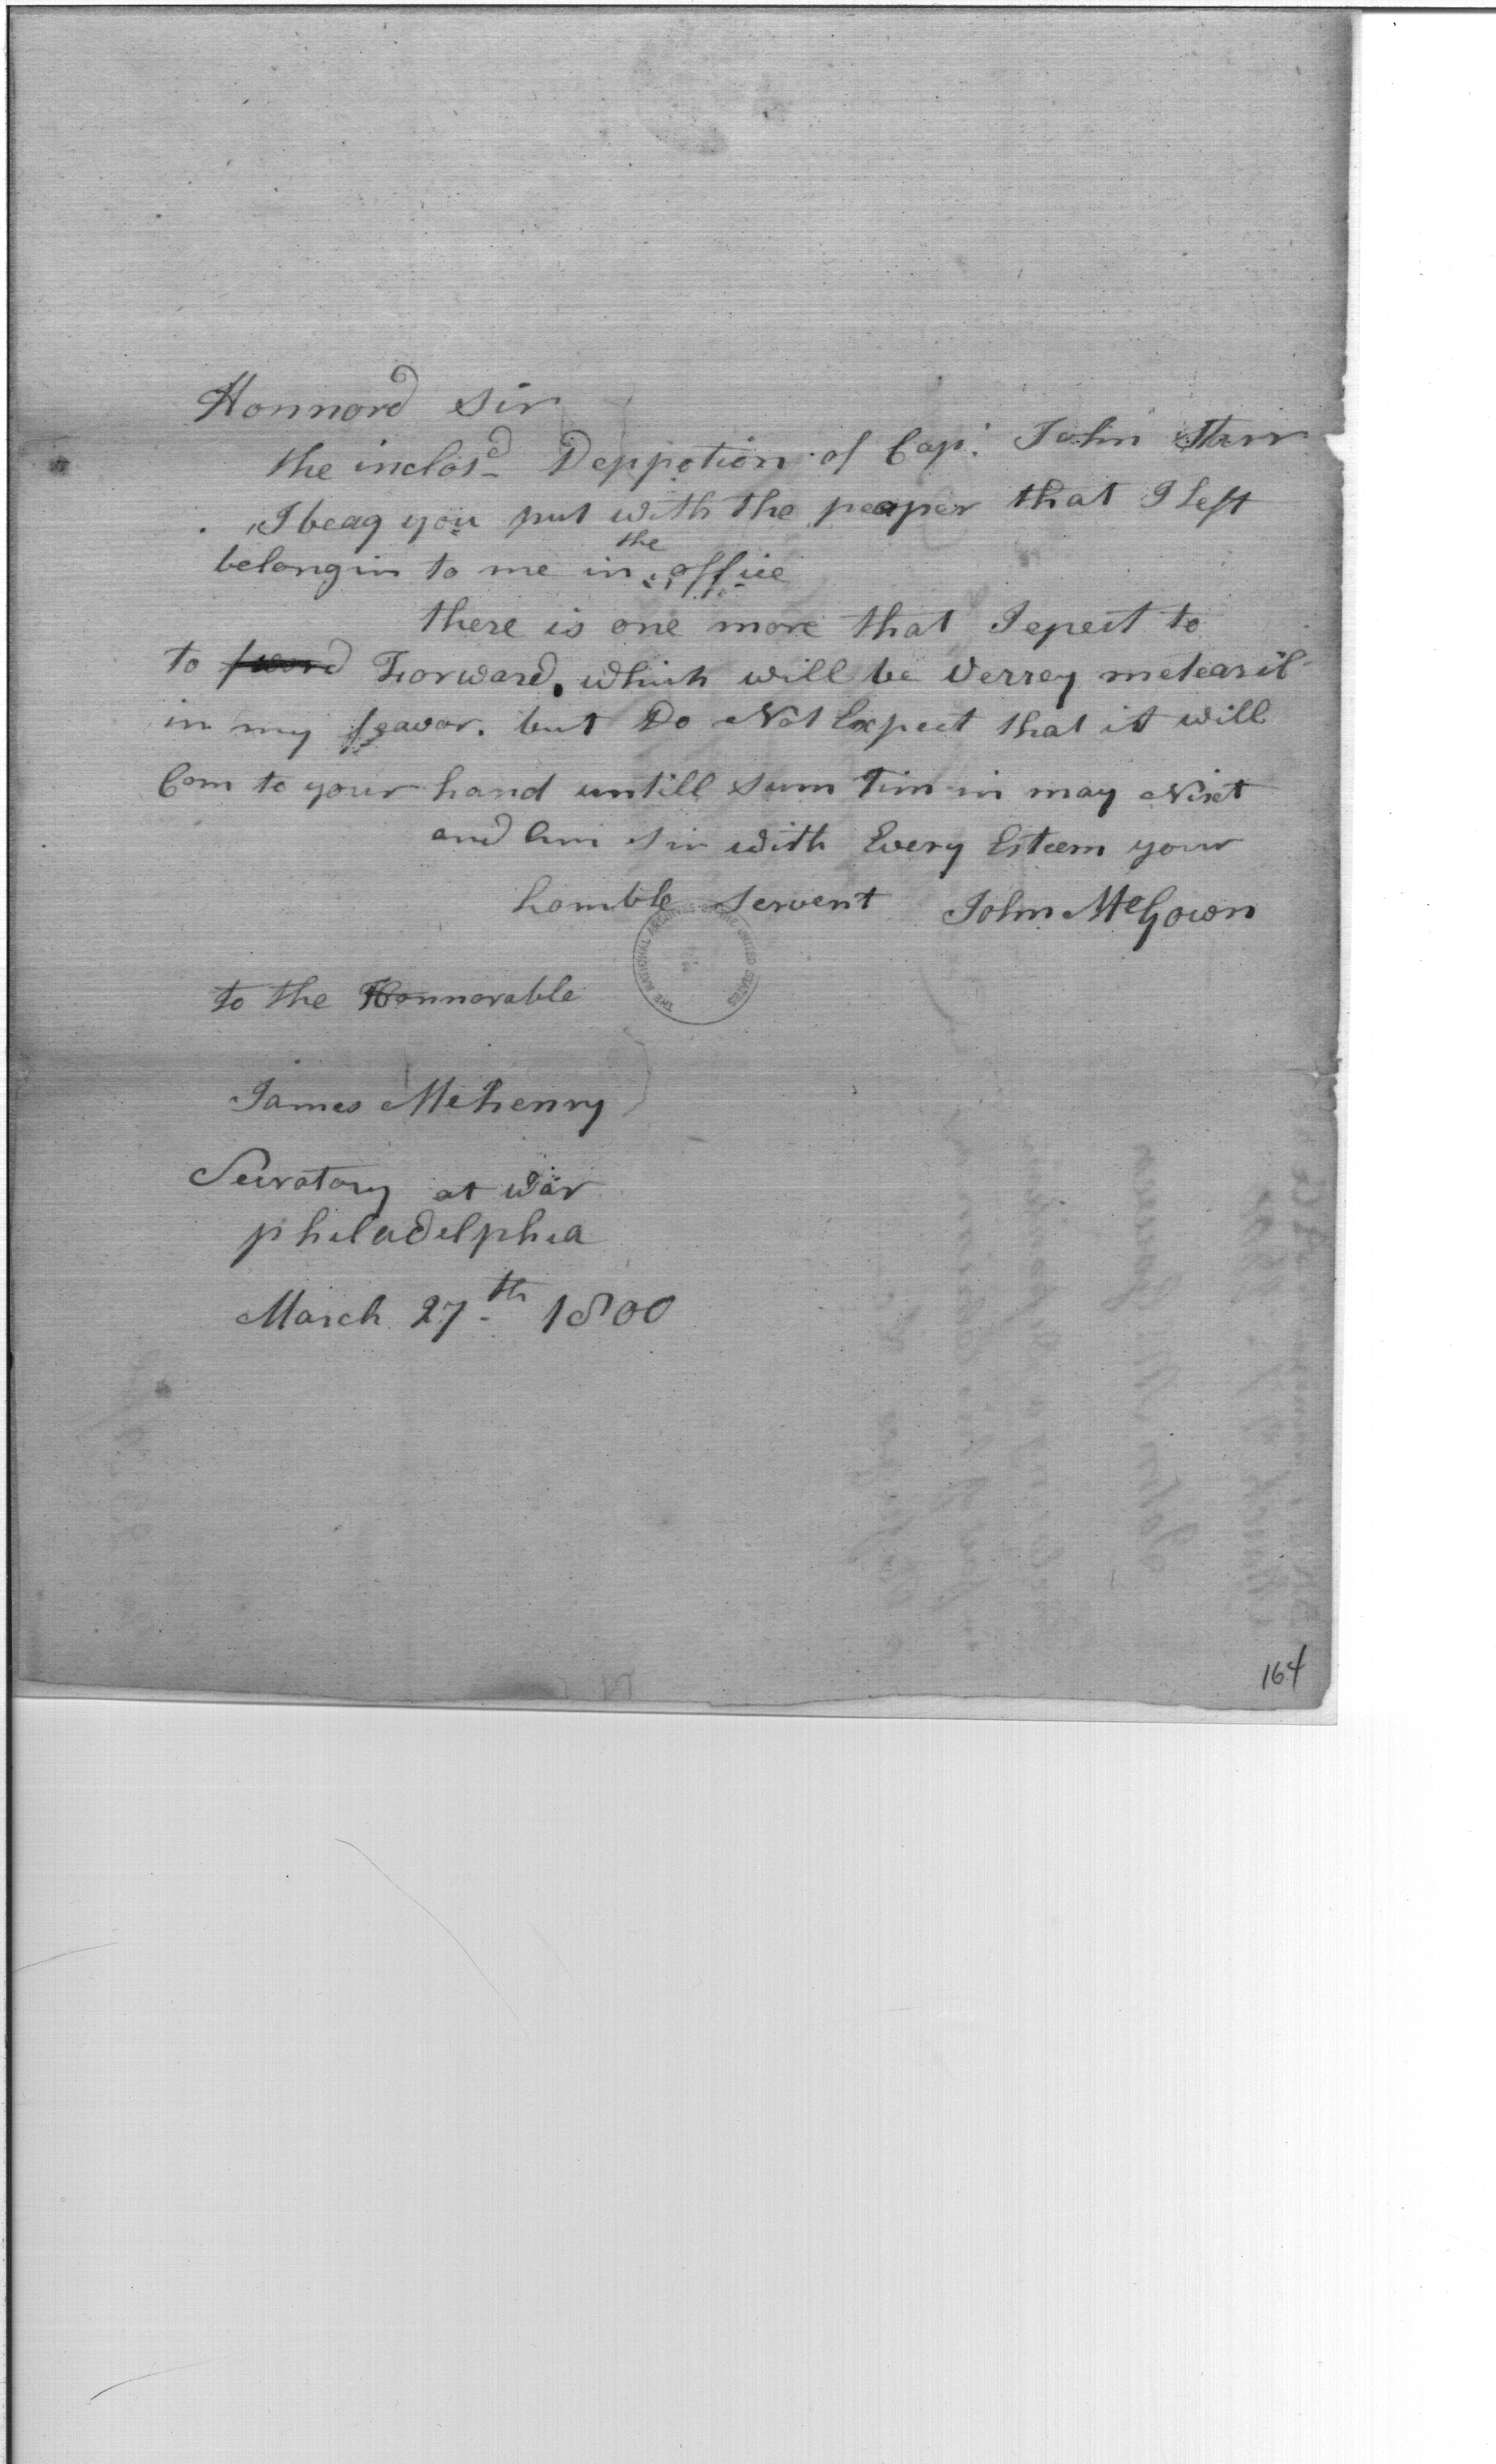 Honnord Sir
the inclosd Deppotion of Cap. John Starr
I beag you put with the peaper that I Left
belongin to me in the office
there is one more that I epect to
to fword Forward, which will be Verrey metearil
in my feavor. but Do Not Expect that it will
Com to your hand untill sum Tim in may Nixt
and am Sir with Every Esteem your
homble Servent John McGown
to the Honnorable
James Mchenry
Secratory at war
philadelphia
March 27th 1800
THE NATIONAL ARCHIVES OF THE UNITED STATES
164